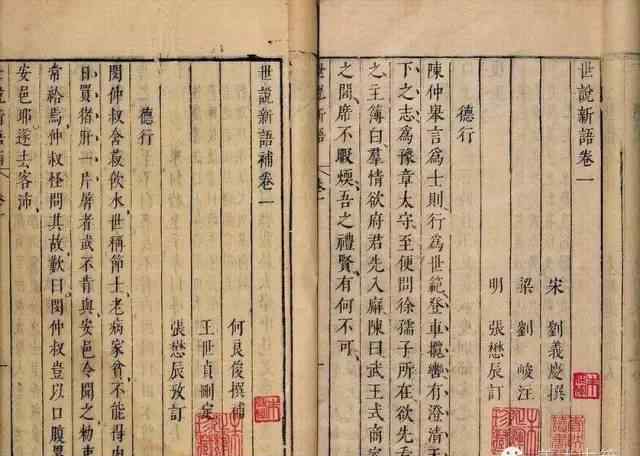 世說新語卷一
宋 劉義慶撰
梁 劉峻注
明 張懋辰訂
德行
陳仲舉言為士則行為世範登車攬轡有澄清天
下之志為豫章太守至便問徐孺子所在欲先看
之主簿白羣情欲府君先入廨陳曰武王式商容
之閭席不暇煖吾之禮賢有何不可
世說新語 卷一
世說新語補卷一
何良俊撰補
王世貞刪定
張懋辰攷訂
德行
閔仲叔舍菽飲水世稱節士老病家貧不能得肉
日買猪肝一片屠者或不肯與安邑令聞之勑吏
常給焉仲叔怪問其故歎曰閔仲叔豈以口腹累
安邑耶遂去客沛
世說新語補 卷一